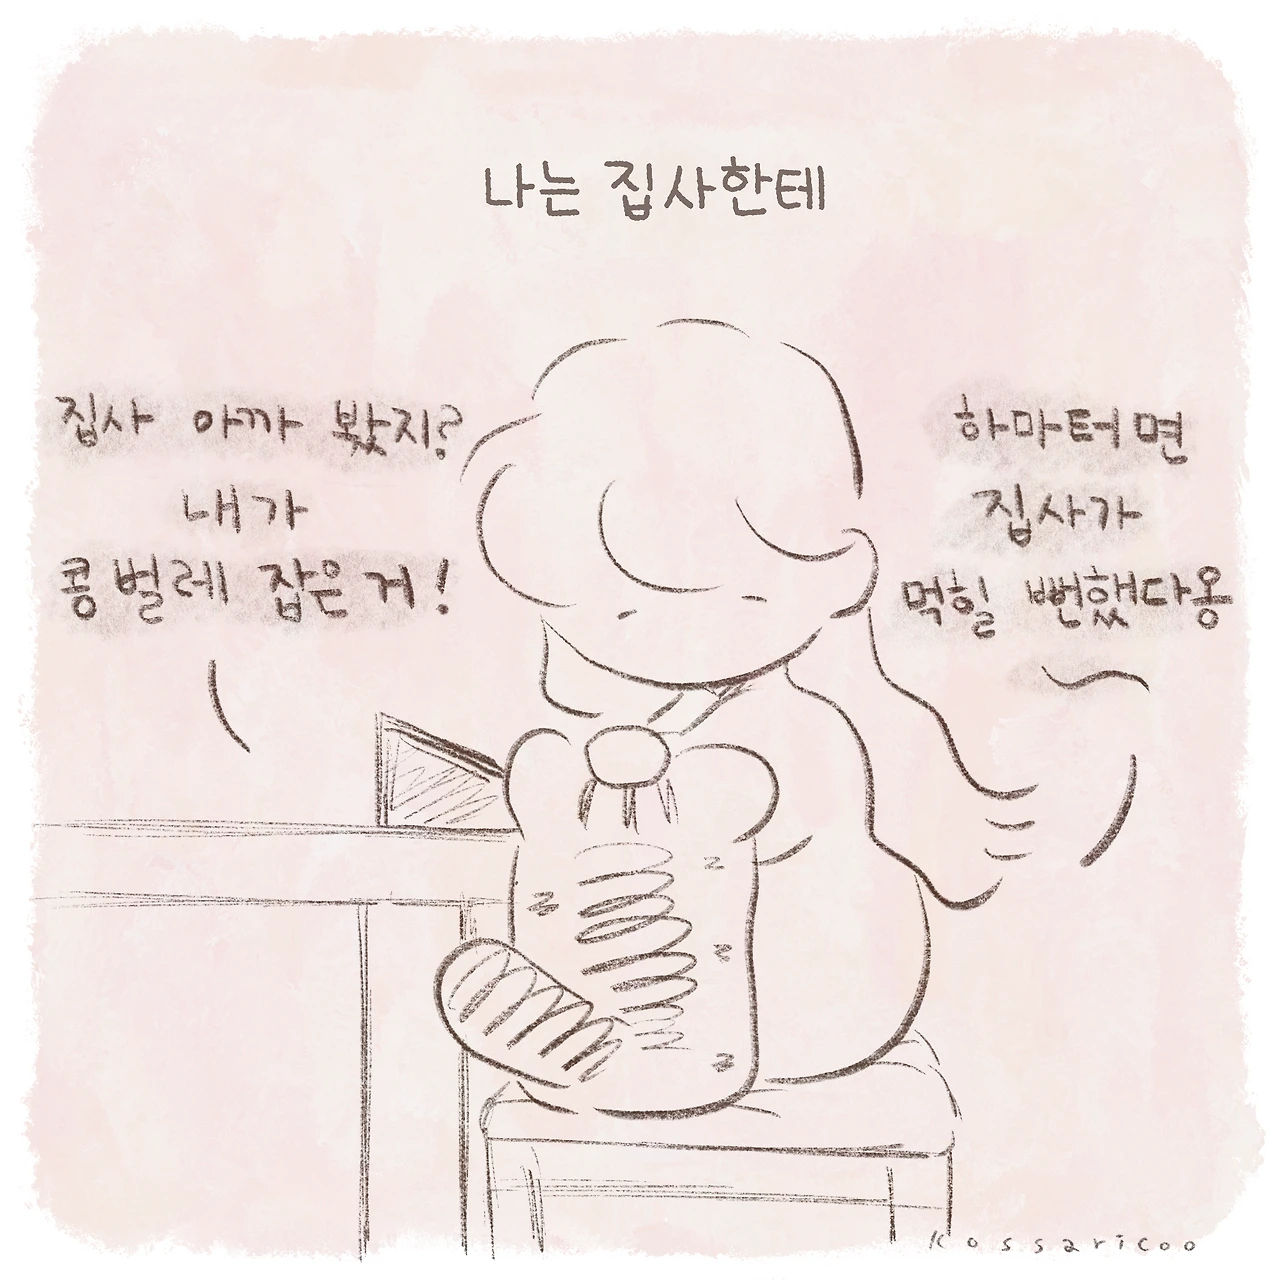 나는 집사한테
집사 아까 봤지?
내가
콩벌레 잡은 거!
하마터면
집사가
먹힐 뻔했다옹
~
Kossaricoo